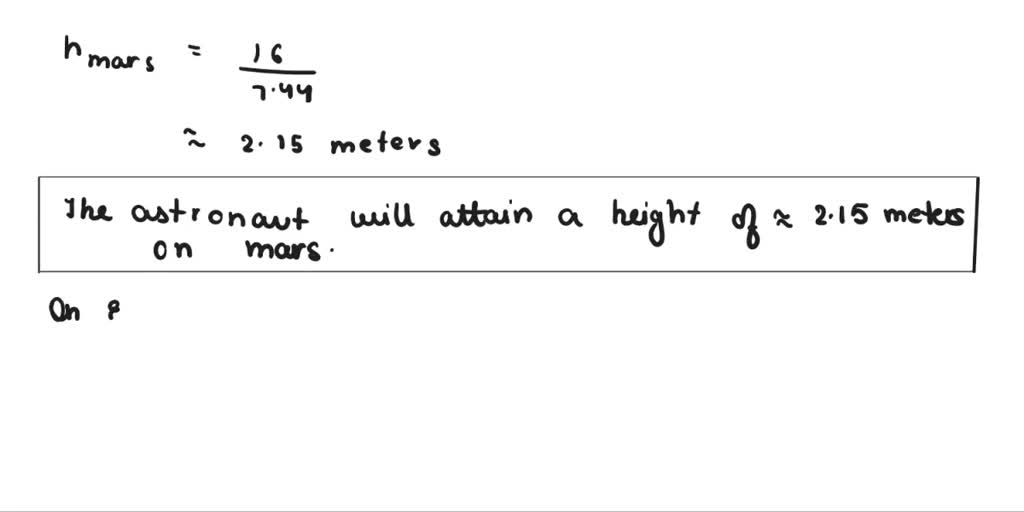 h mars = 16
7.44
≈ 2.15 meters
The astronaut will attain a height of ≈ 2.15 meters
on mars.
On